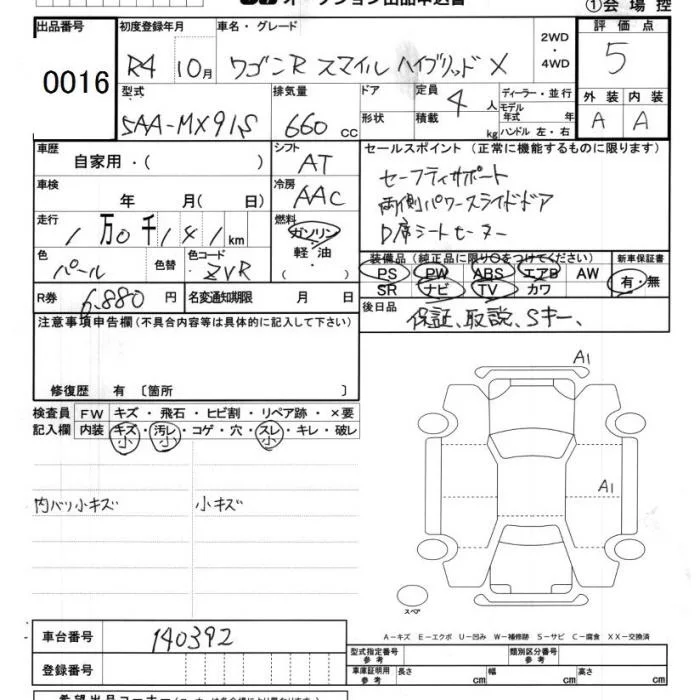 オークション出品申込書
①会場控
出品番号 初度登録年月 車名・グレード 2WD・4WD 評価点
0016 R4 10月 ワゴンR スマイル ハイブリッド X 5
型式 排気量 ドア 定員 4 人 ディーラー・並行 外装 内装
5AA-MX91S 660 cc 形状 積載 kg モデル年式 年 ハンドル 左・右 A A
車歴 自家用・( ) シフト AT セールスポイント(正常に機能するものに限ります)
車検 年 月( 日) 冷房 AAC セーフティサポート
両側パワースライドドア
走行 1万0千141km 燃料 ガソリン・軽油・( ) D席シートヒーター
色 パール 色替 色コード ZVR 装備品(純正品に限り○をつけてください) 新車保証書
PS PW ABS エアB AW 有・無
SR ナビ TV カワ
R券 6,880 円 名変通知期限 月 日 後日品
保証、取説、Sキー、
注意事項申告欄(不具合内容等は具体的に記入して下さい)
修復歴 有 〔箇所 〕
A1
検査員 FW キズ・飛石・ヒビ割・リペア跡・×要
記入欄 内装 キズ・汚レ・コゲ・穴・スレ・キレ・破レ
小 小 小
A1
内バリ小キズ 小キズ
スペア
車台番号 140392
A-キズ E-エクボ U-凹み W-補修跡 S-サビ C-腐食 XX-交換済
登録番号 型式指定番号 参考 類別区分番号 参考
車庫証明用 参考 長さ cm 幅 cm 高さ cm
希望出品コーナー